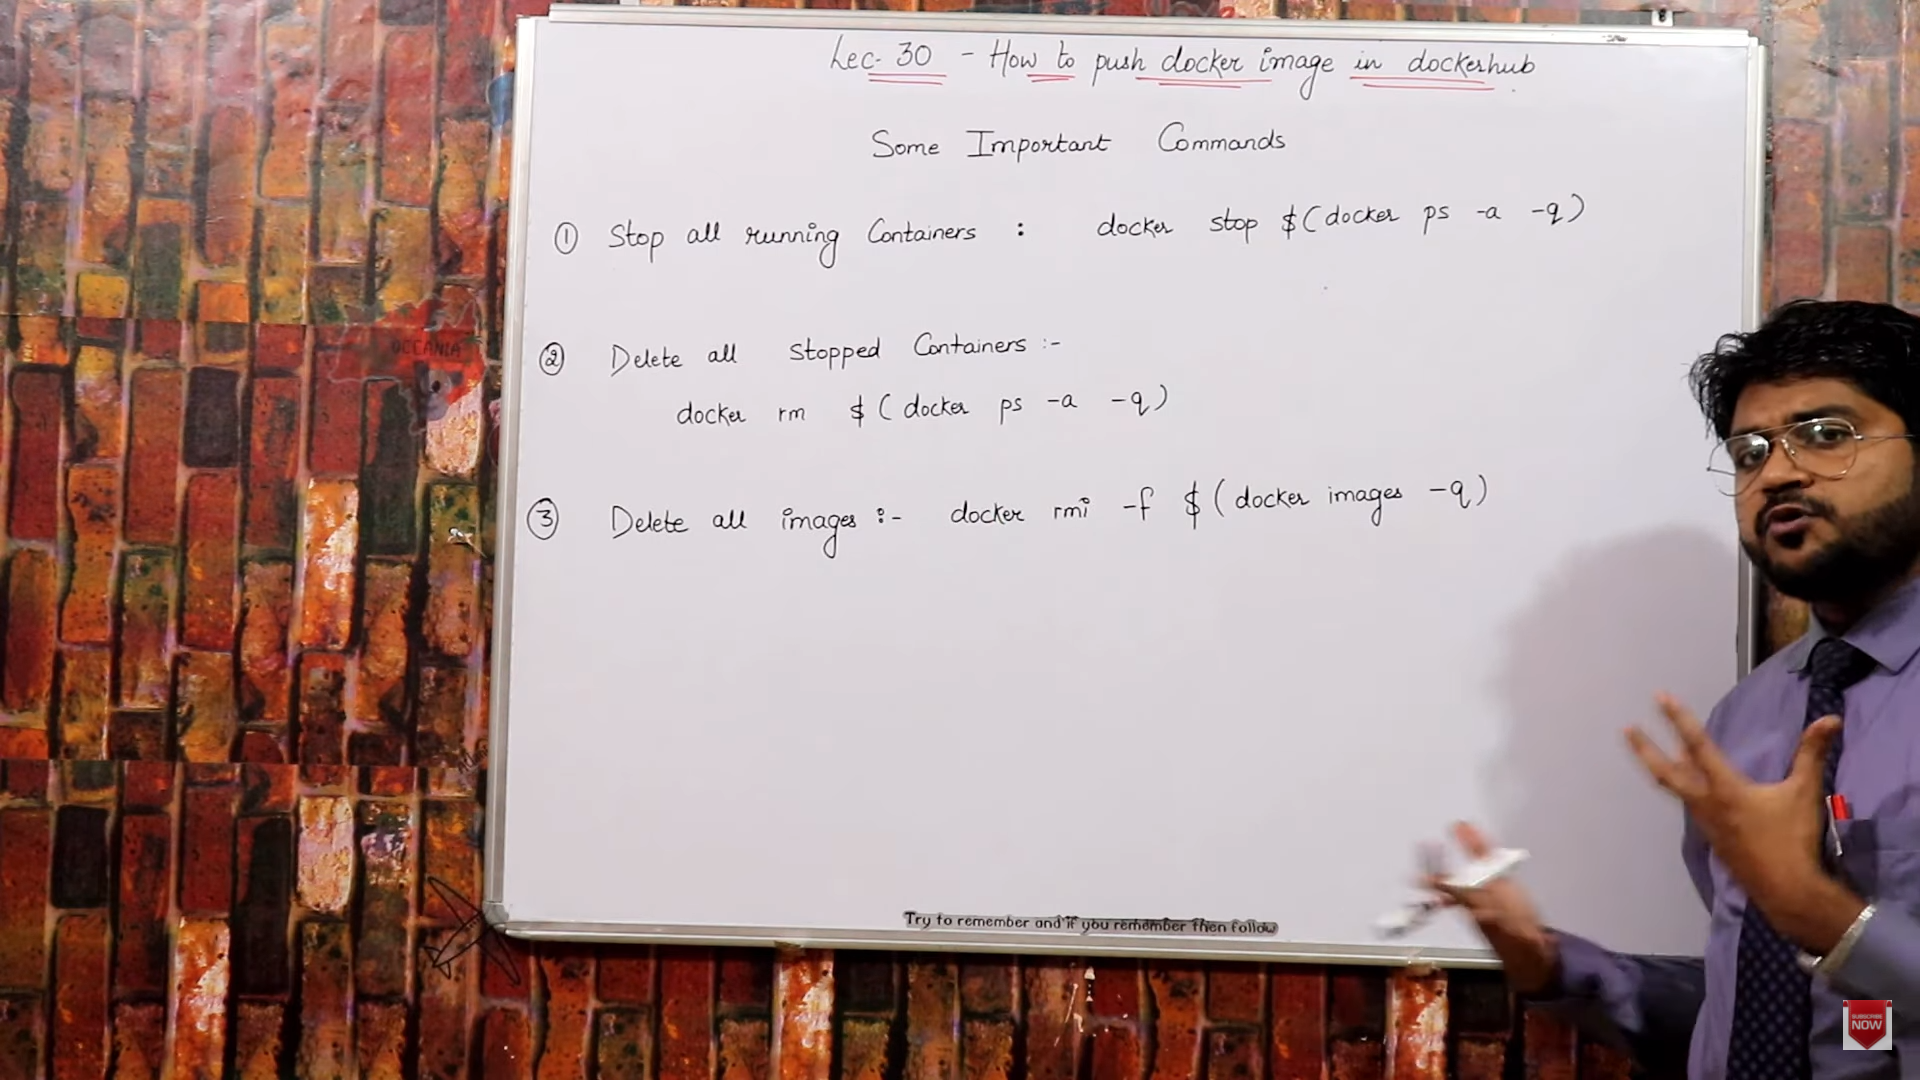 Lec- 30 - How to push docker image in dockerhub
Some Important Commands
① Stop all running Containers : docker stop $(docker ps -a -q)
OCEANIA
② Delete all stopped Containers :-
docker rm $(docker ps -a -q)
③ Delete all images :- docker rmi -f $(docker images -q)
Try to remember and if you remember then follow
SUBSCRIBE
NOW